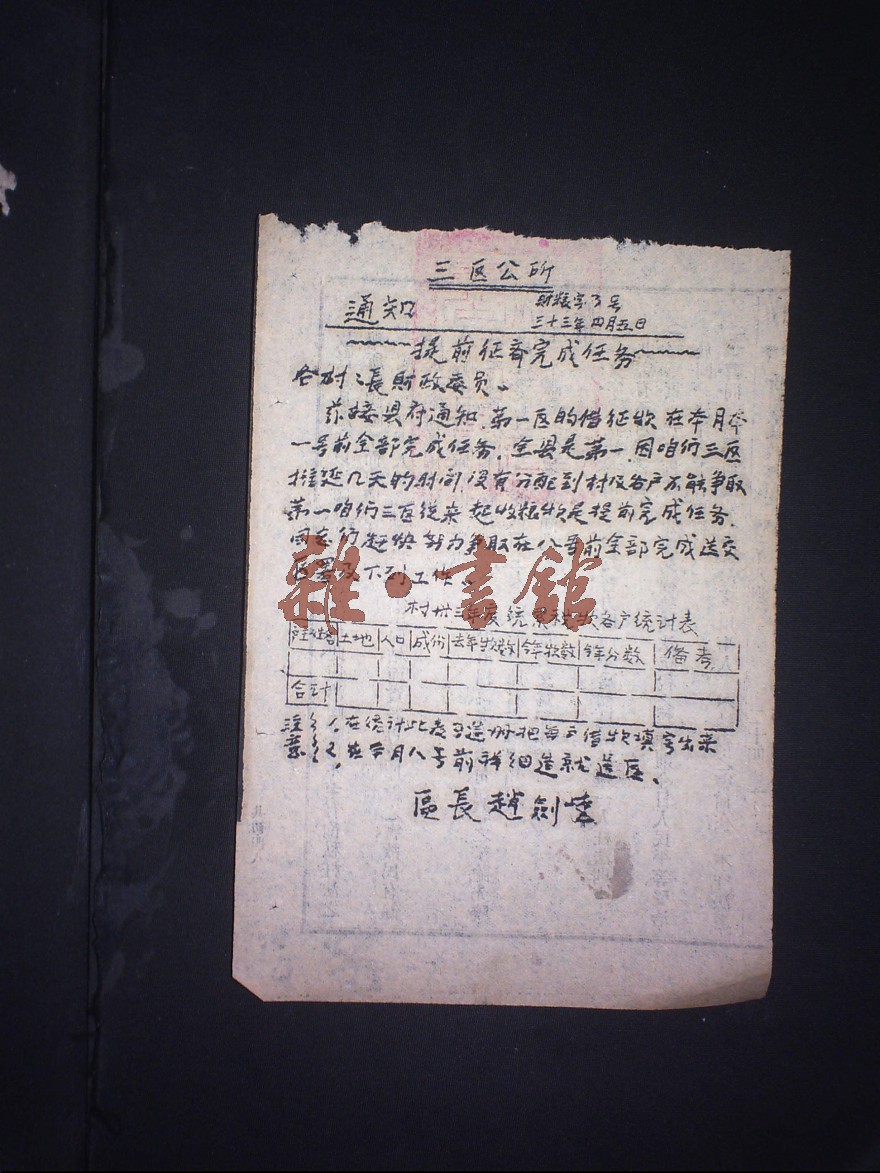 三区公所
通知
财粮字3号
三十三年四月五日
提前征齐完成任务
各村村长财政委员。
兹接县府通知,第一区的借征款在本月
一号前全部完成任务,全县是第一,因咱们三区
推延几天的时间没有分配到村及各户不能争取
第一咱们三区从来起收粮款是提前完成任务,
同志们赶快努力争取在八号前全部完成送交
区署 工作。
村卅三年度统累税款各户统计表
土地 人口 成份 去年款数 今年款数 今年分数 备考
合计
注意 1,在统计此表 造册把每户借款填写出来
2,在本月八号前详细造就送区。
區長趙劍
雜·書館